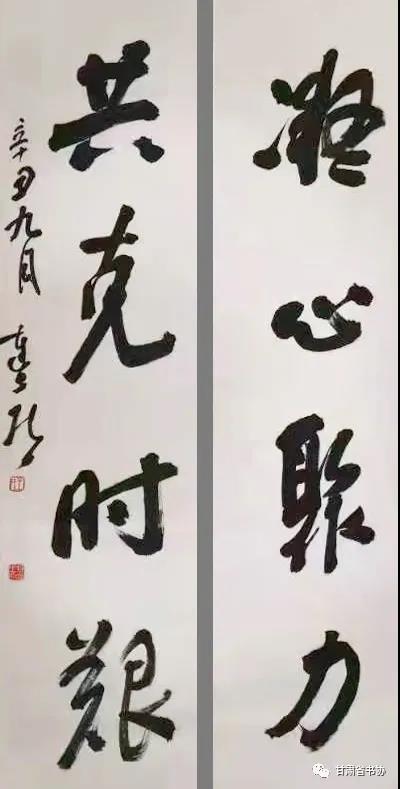 凝心聚力
共克时艰
辛丑九月
甘肃省书协